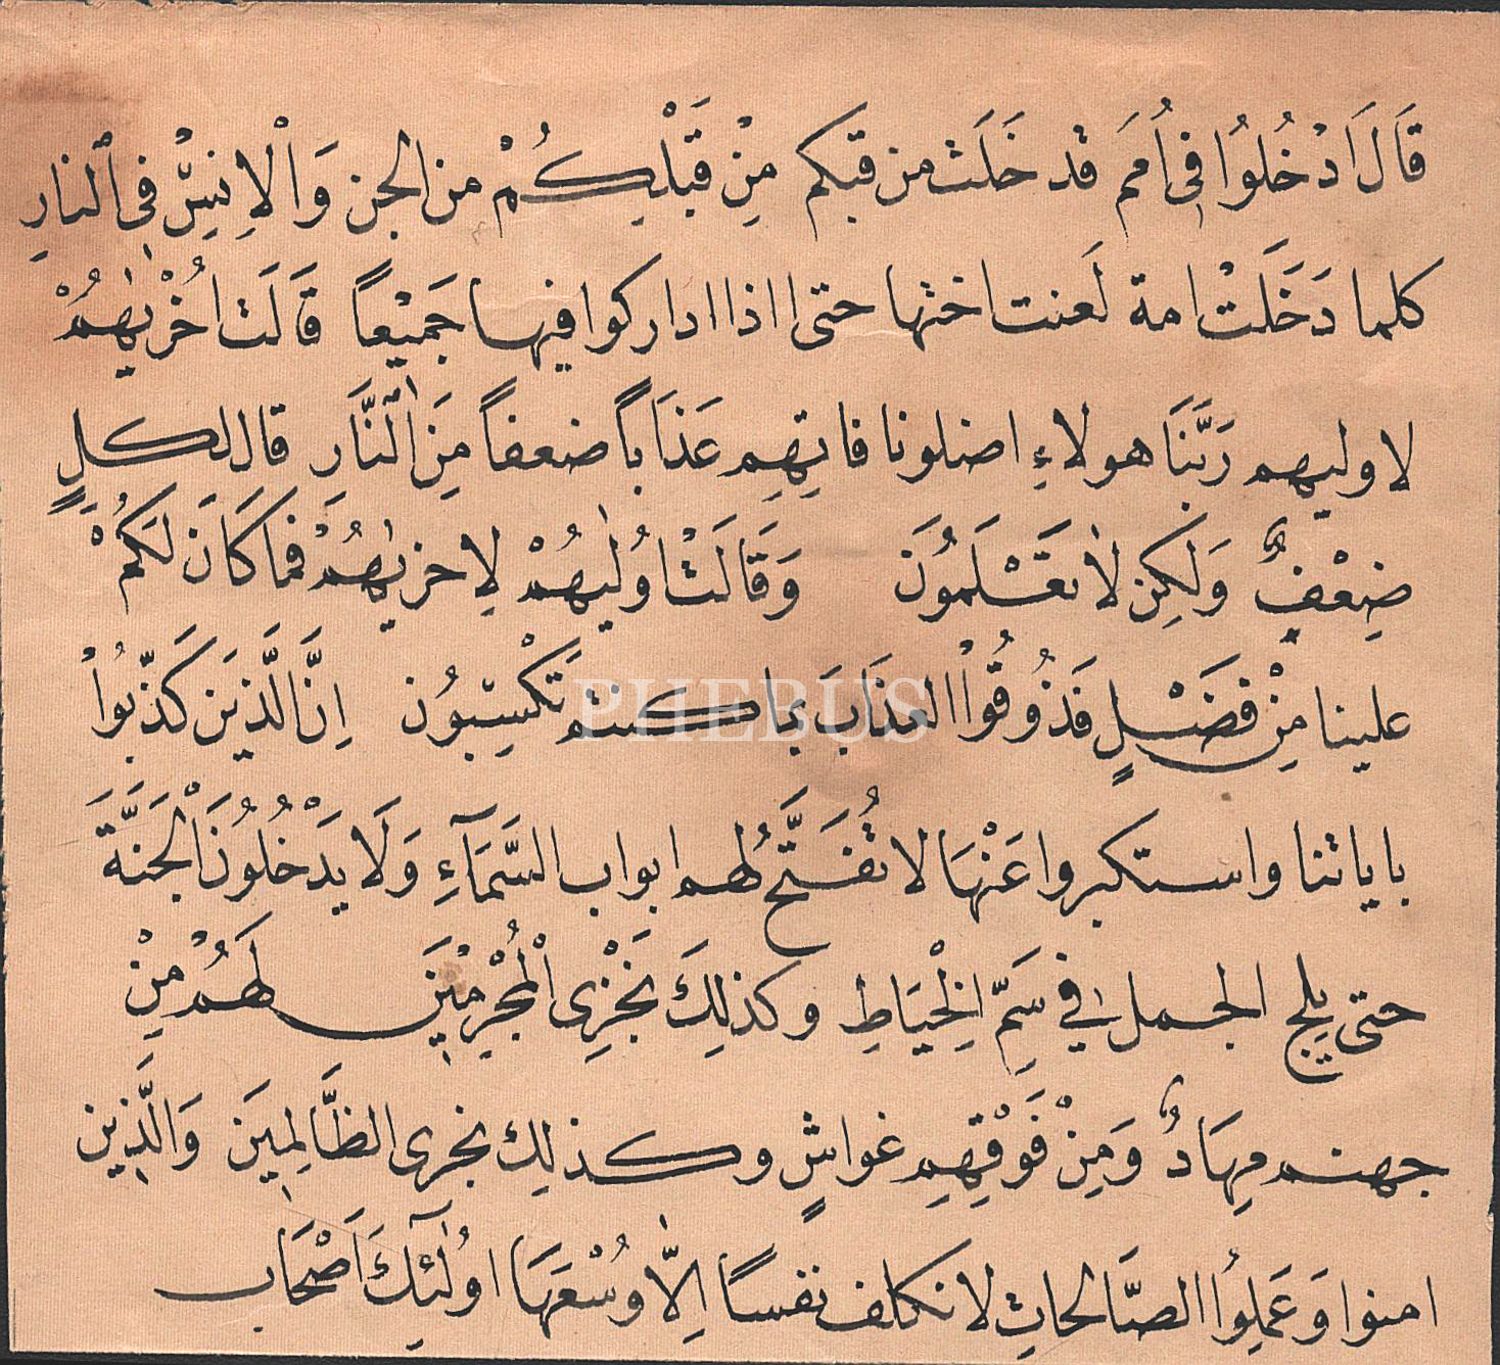 قَالَ ادْخُلُوا فِي اُمَمٍ قد خَلَت من قبكم مِنْ قَبْلِكُمْ من الجن وَالْاِنْسِ فِي النارِ
كلما دَخَلَتْ امة لَعنت اختها حتى اذا ادار كوا فيها جَمِيْعاً قَالَتْ اُخْرٰيهُمْ
لاوليهم رَبَّنَا هولاءِ اضلونا فاتِهِم عَذَاباً ضعفاً مِنَ النَّار قال لكلٍ
ضِعْفٌ وَلكِن لَا تَعْلَمُونَ وَقَالَتْ اُوْلٰيهُمْ لِاخريٰهُمْ فَمَا كَانَ لَكُمْ
علينا مِنْ فَضْلٍ فَذُوقُواْ العذَابَ بما كنتم تَكْسِبُون اِنَّ الَّذِينَ كَذَّبُواْ
PHEBUS
باياتنا واستكبروا عَنْهَا لا تُفَتَّحُ لهم ابواب السَّمَآءِ وَلَا يَدْخُلُونَ الْجَنَّةَ
حتى يلِج الجمل في سَمِّ الْخِيَاطِ وكذلِكَ نَجْزِى الْمُجْرِمِينَ لَهُمْ مِنْ
جهنم مِهَادٌ وَمِنْ فَوْقِهِم غواشٍ وكذلِك نجزى الظَّالِمِينَ وَالَّذِين
امنوا وَعَمِلُوا الصَّالحاتِ لا نكلف نفساً اِلَّا وُسْعَهَا اوُلٰٓئِكَ اَصْحَاب